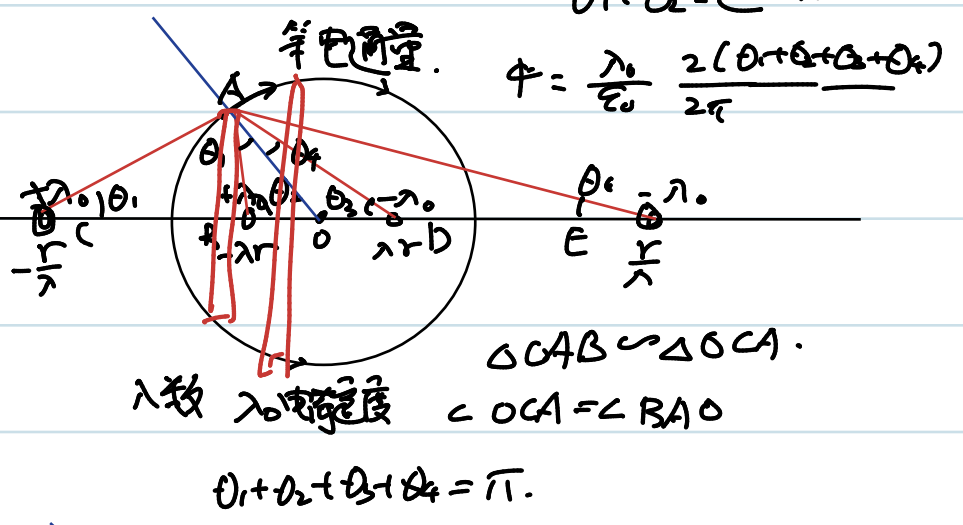 θ₁+θ₂=
等电通量.
φ = λ₀/ε₀ 2(θ₁+θ₂+θ₃+θ₄)/2π
A
θ₁ θ₄
+λ₀ θ₁ +λ₀ θ₂ θ₃ -λ₀ θ₄ -λ₀
C -λr O λr D E
-r/λ r/λ
△OAB∽△OCA.
λ数 λ₀电荷密度 ∠OCA=∠BAO
θ₁+θ₂+θ₃+θ₄=π.